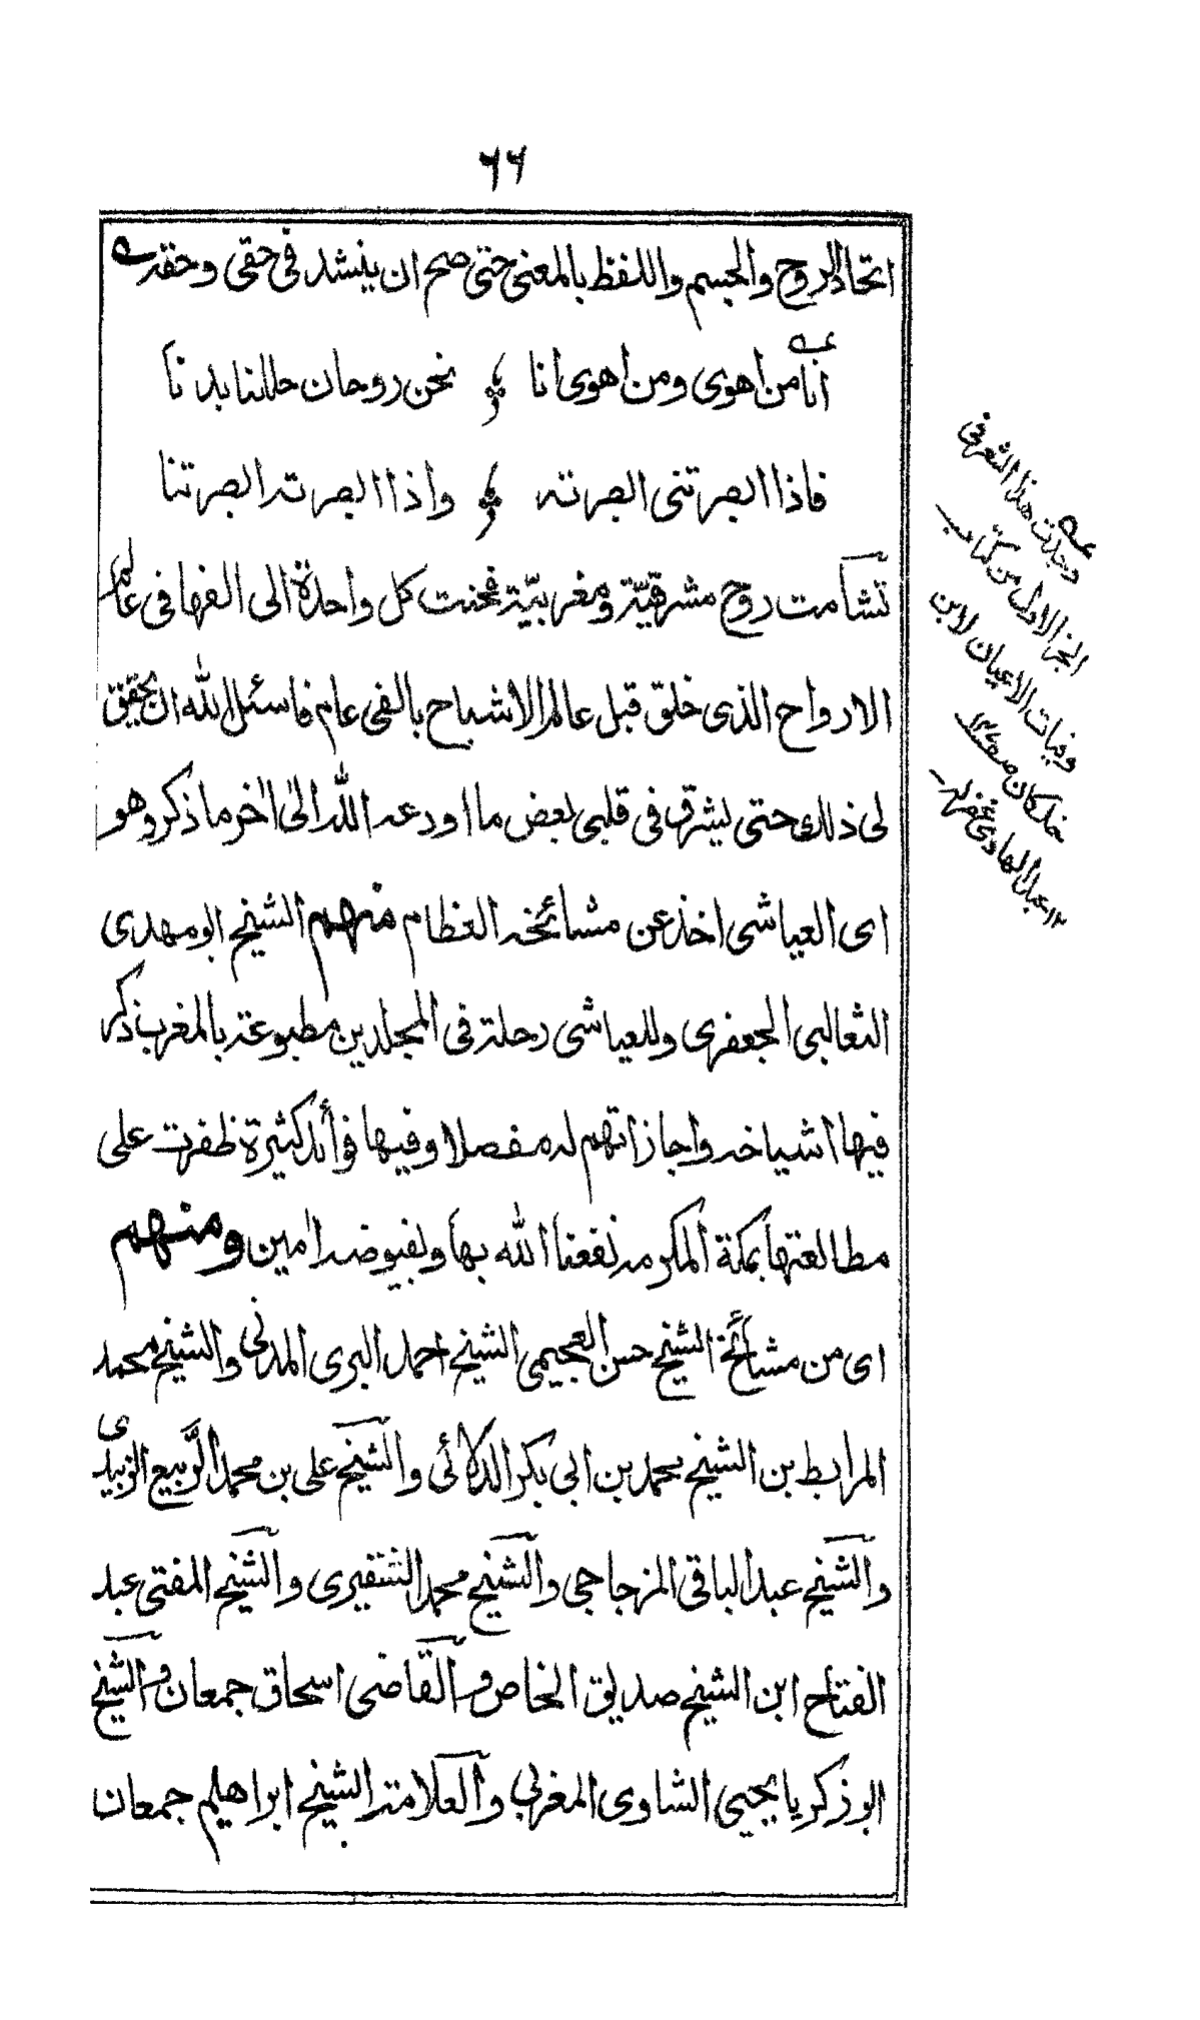 ٦٦
اتحاد الروح والجسم واللفظ بالمعنى حتى صح ان ينشد فى حقى وحقه
انا من اهوى ومن اهوى انا نحن روحان حللنا بدنا
فاذا ابصرتنى ابصرته واذا ابصرته ابصرتنا
تشآمت روح مشرقيّة ومغربيّة فحنت كل واحدة الى الفها فى عالم
الارواح الذى خلق قبل عالم الاشباح بالفى عام فاسئل الله ان يحقق
لى ذلك حتى يشرق فى قلبى بعض ما اودعه الله الى اخر ما ذكر وهو
اى العياشى اخذ عن مشائخه العظام منهم الشيخ ابو مهدى
الثعالبى الجعفرى وللعياشى رحلة فى المجلدين مطبوعة بالمغرب ذكر
فيها اشياخه واجازاتهم له مفصلا وفيها فوائد كثيرة ظفرت على
مطالعتها بمكة المكرمه نفعنا الله بها وبفيوضه امين ومنهم
اى من مشائخ الشيخ حسن العجيمى الشيخ احمد البرى المدنى والشيخ محمد
المرابط بن الشيخ محمد بن ابى بكر الدلائى والشيخ على بن محمد الربيع الزبيدى
والشيخ عبد الباقى المزجاجى والشيخ محمد الشقيرى والشيخ المفتى عبد
الفتاح ابن الشيخ صديق الخاص والقاضى اسحاق جمعان والشيخ
ابو زكريا يحيى الشاوى المغربى والعلامة الشيخ ابراهيم جمعان
عه وجدت هذا الشعر فى
الجز الاول من كتاب
وفيات الاعيان لابن
خلكان
١٢ عبد الهادى غفر له